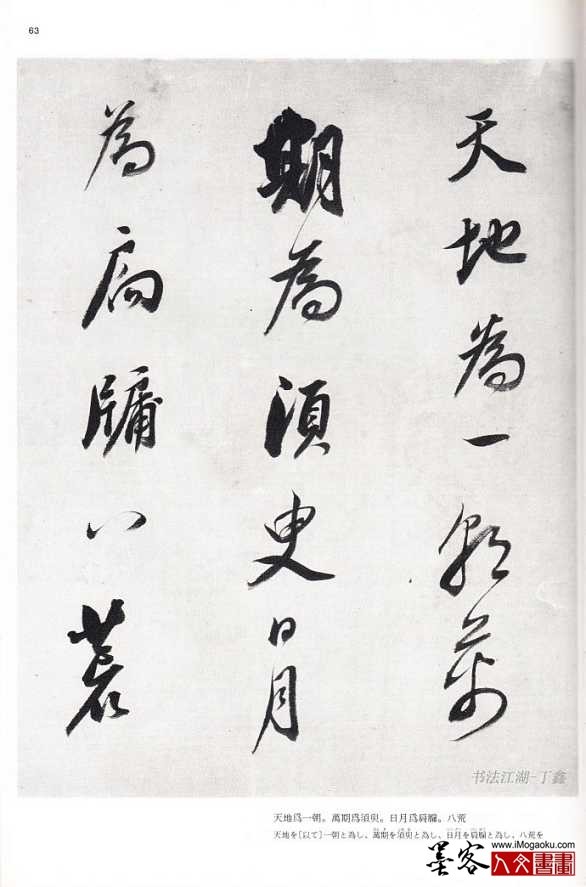 63
天地為一朝萬
期為須臾日月
為扃牖八荒
书法江湖-丁鑫
天地爲一朝。萬期爲須臾。日月爲扃牖。八荒
天地を[以て]一朝と為し、萬期を須臾と為し、日月を扃牖と為し、八荒を
墨客
www.iMogaoku.com
人文書畫